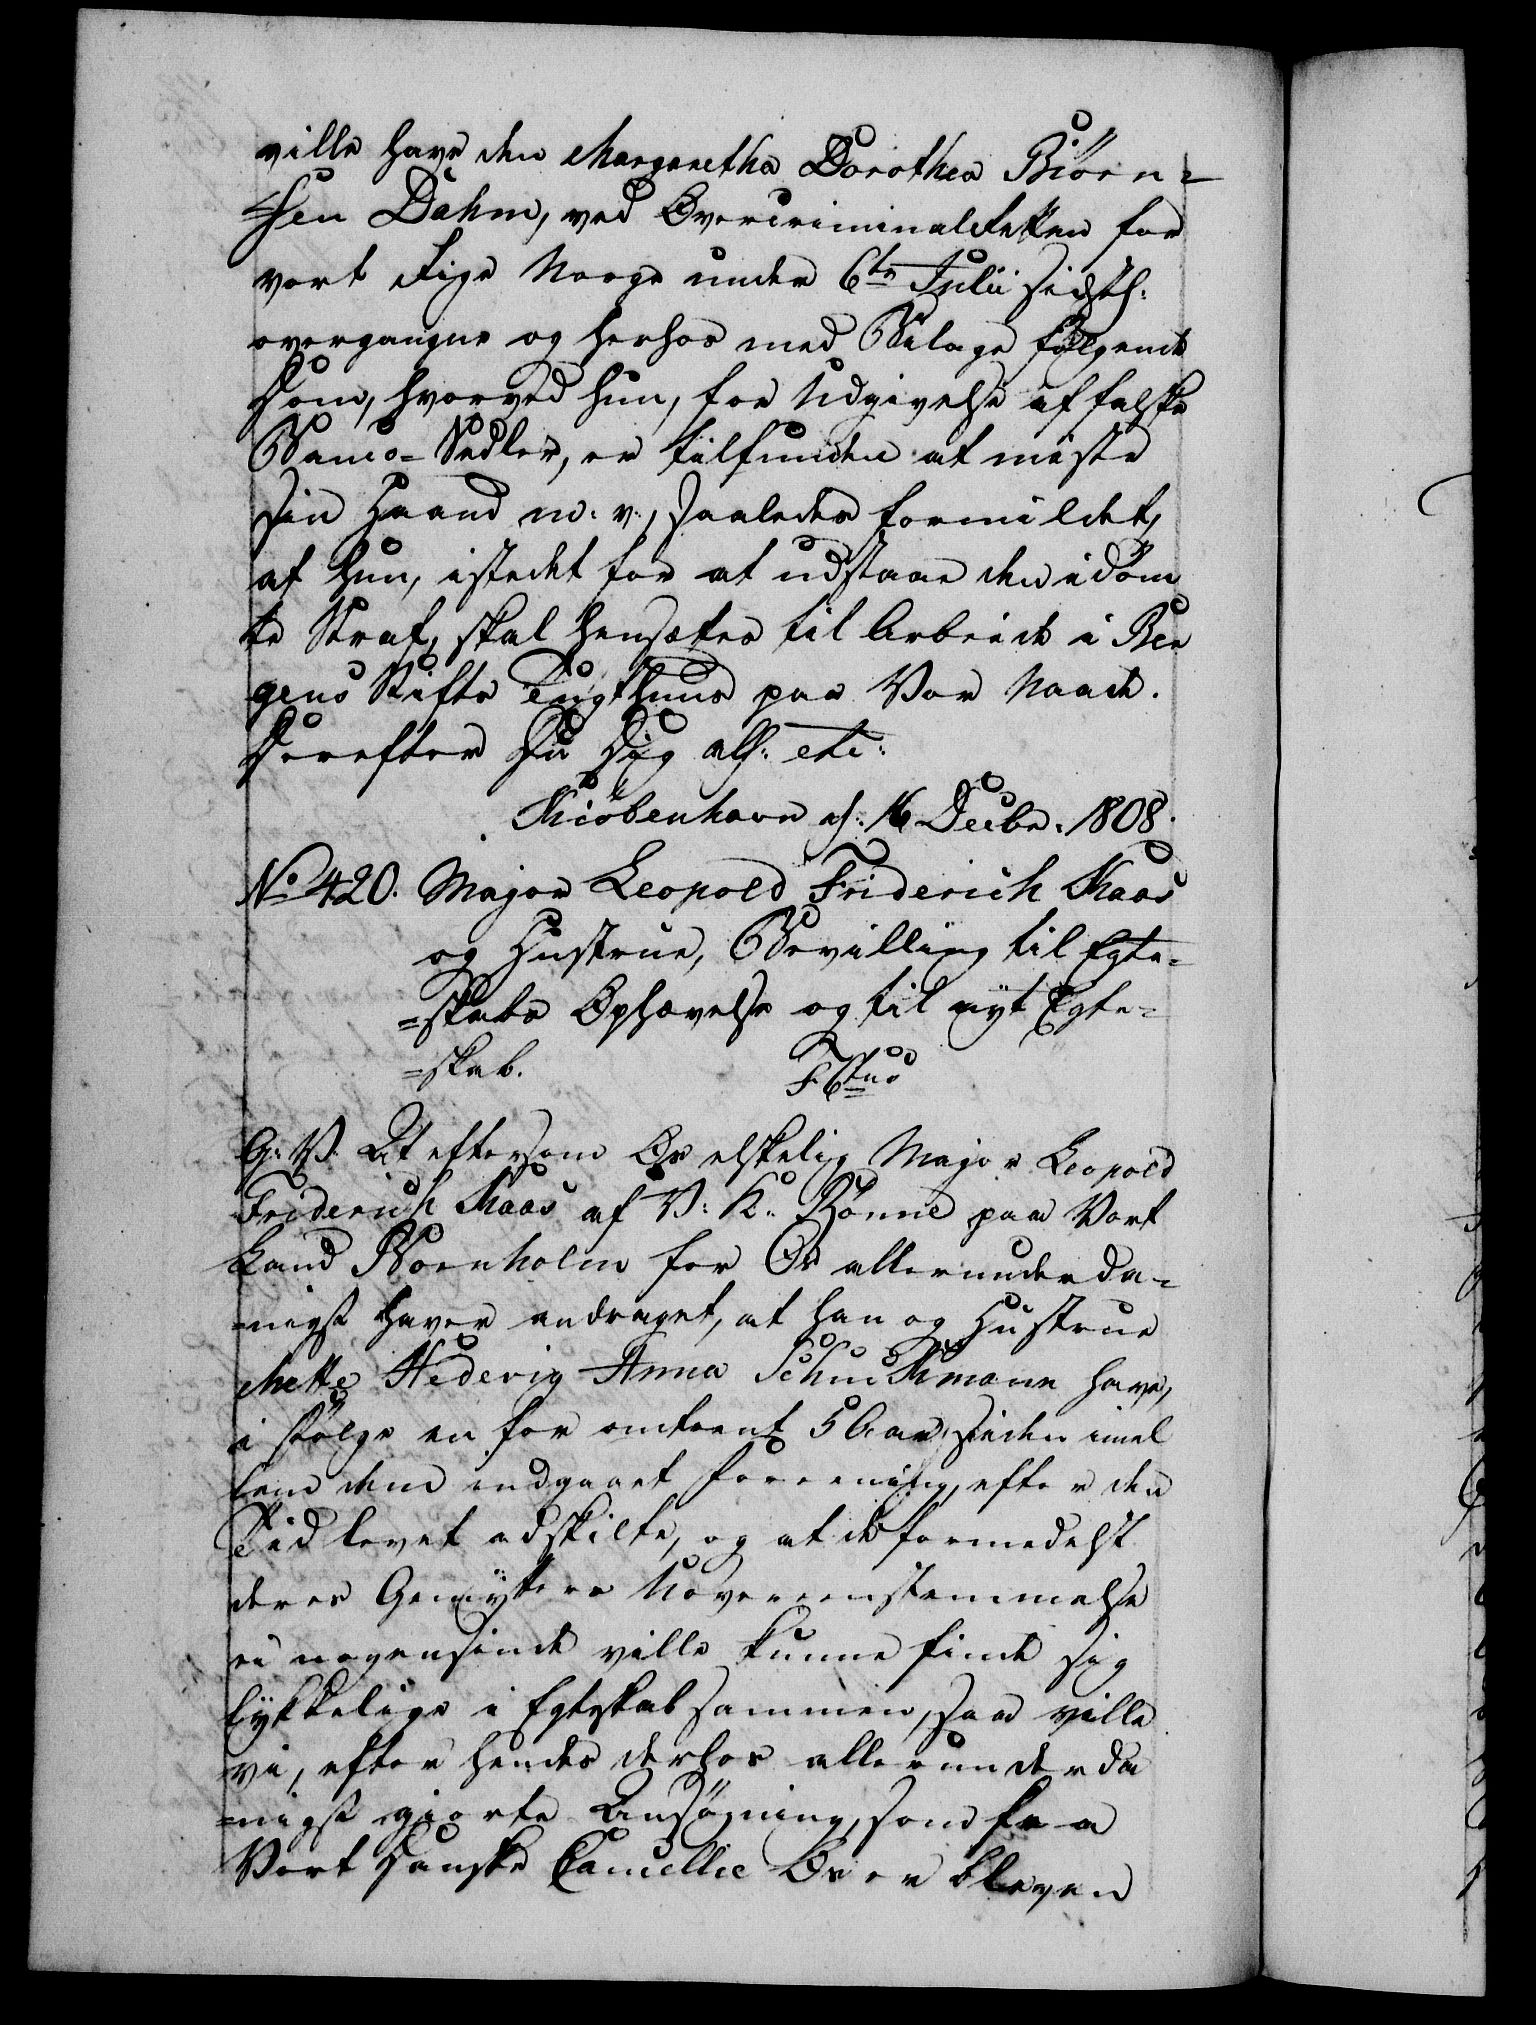 ville have den Margaretha Dorothea Biørn¬
sen Dahm, ved Overcriminalretten for
vort Rige Norge under 6te Julii sidstl:
overgangne og herhos med Bilage følgende
Dom, hvorved hun, for Udgivelse af falske
Banco-Sedler, er tilfunden at miste
sin Haand m: v:, saaledes formildet,
at hun, istedet for at udstaae den idøm
te Straf, skal hensættes til Arbeide i Ber
gens Stifts Tugthuus paa Vor Naade.
Derefter Du Dig all: etc:
Kiøbenhavn d: 16 Decbr: 1808.
No 420. Major Leopold Friderich Kaas
og Hustrue, Bevilling til Egte¬
=skabs Ophævelse og til nyt Egte¬
=skab.
F. 6tus
G: V: At eftersom Os elskelig Major Leopold
Friderich Kaas af V: K: Rønne paa Vort
Land Bornholm for Os allerunderda¬
=nigst haver andraget, at han og Hustrue
Mette Hedevig Anna Schuckmann have,
i følge en for omtrent 5 Aar siden imel
lem dem indgaaet Foreening, efter den
Tid levet adskilte, og at de formedelst
deres Gemytters Uovereensstemmelse
ei nogensinde ville kunne finde sig
lykkelige i Egteskab sammen, saa ville
vi, efter hendes derhos allerunderda
=nigst giorte Ansøgning, som fra
Vort Danske Cancellie Os er bleven